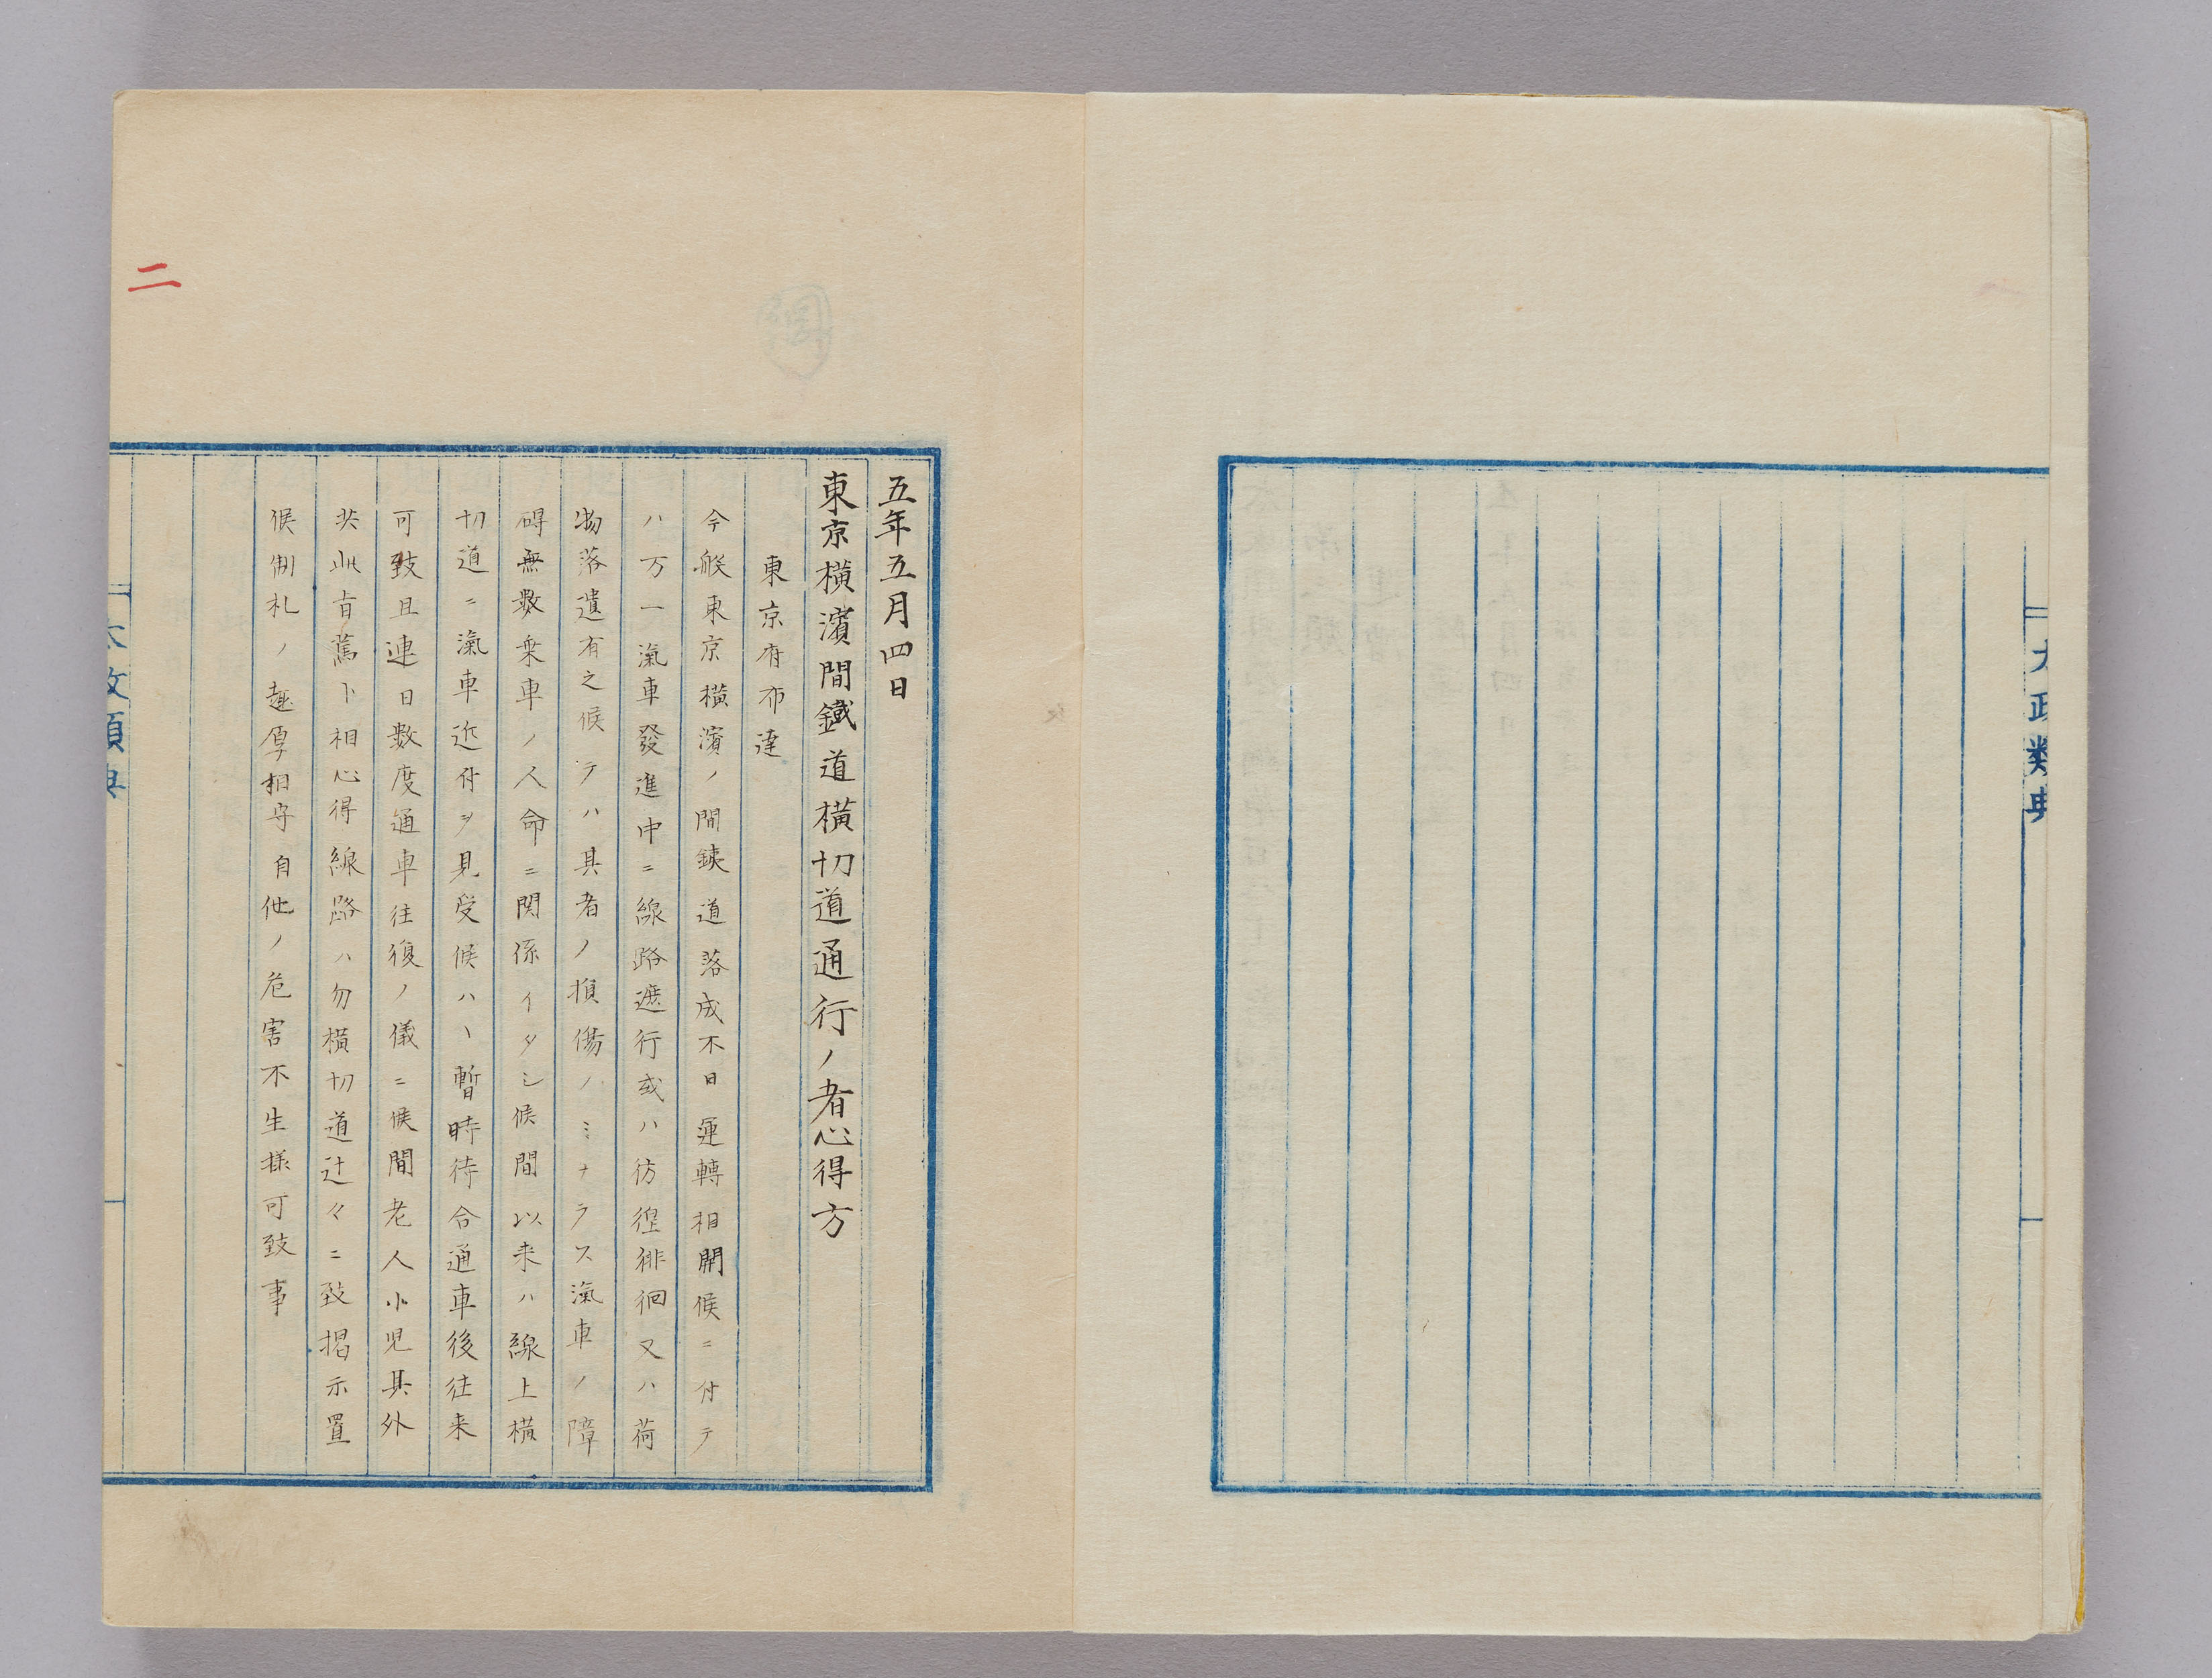 太政類典
五年五月四日
東京橫濱間鐵道橫切道通行ノ者心得方
東京府布達
今般東京橫濱ノ間鉄道落成不日運轉相開候ニ付テ
ハ万一滊車發進中ニ線路遮行或ハ彷徨徘徊又ハ荷
物落遺有之候テハ其者ノ損傷ノミナラス滊車ノ障
碍無数乗車ノ人命ニ関係イタシ候間以来ハ線上橫
切道ニ滊車近付ヲ見受候ハヽ暫時待合通車後往来
可致且連日数度通車往復ノ儀ニ候間老人小児其外
共此旨篤ト相心得線路ハ勿橫切道辻々ニ致掲示置
候制札ノ趣厚相守自他ノ危害不生様可致事
二
太政類典